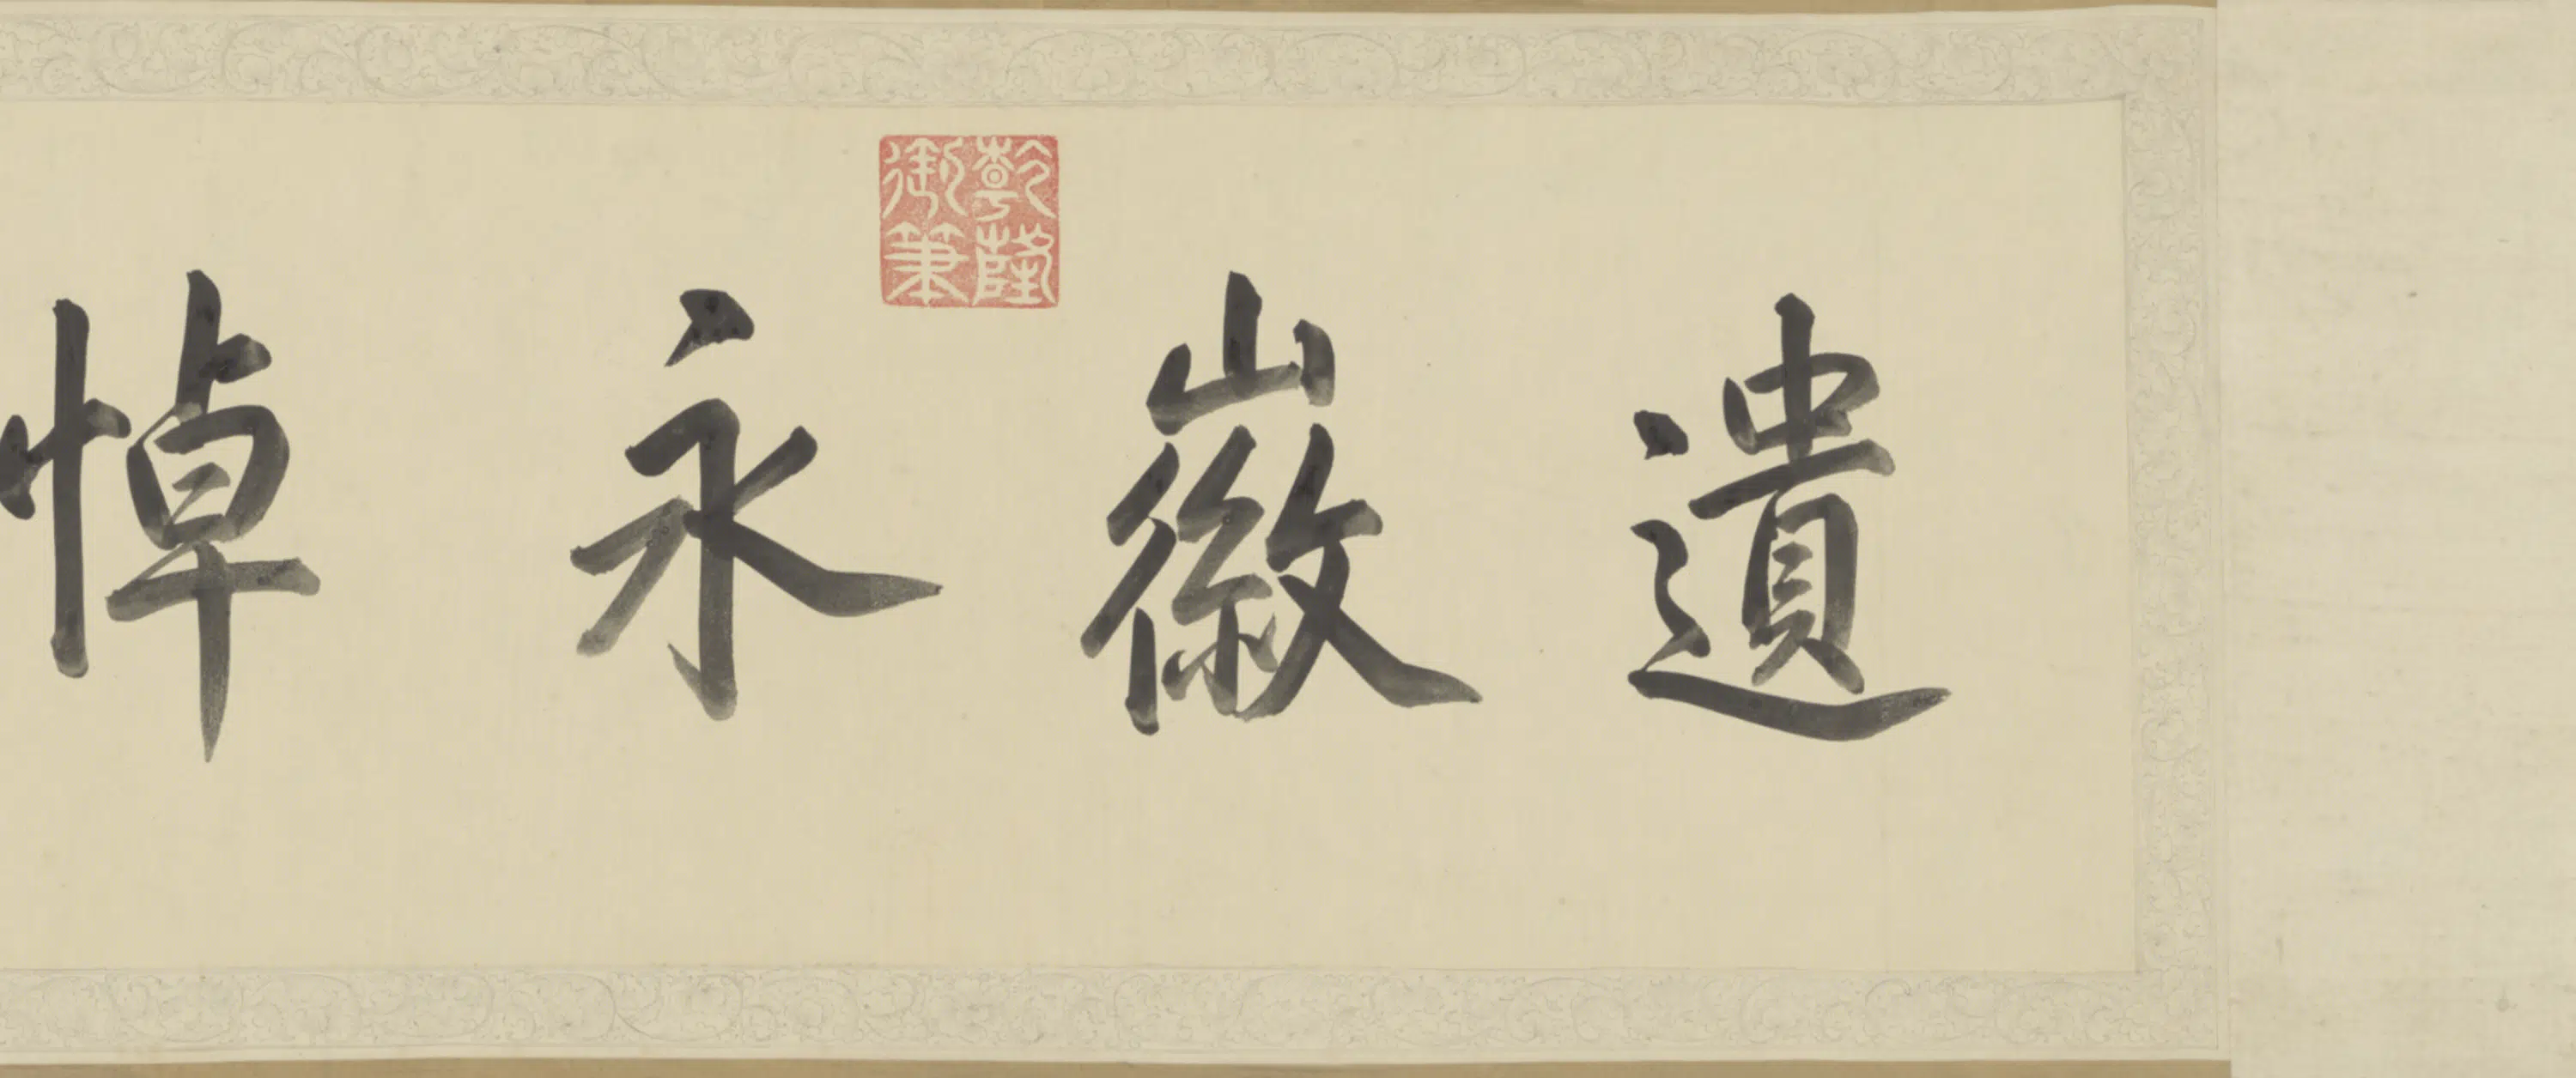 遺徽永悼
乾隆
御筆